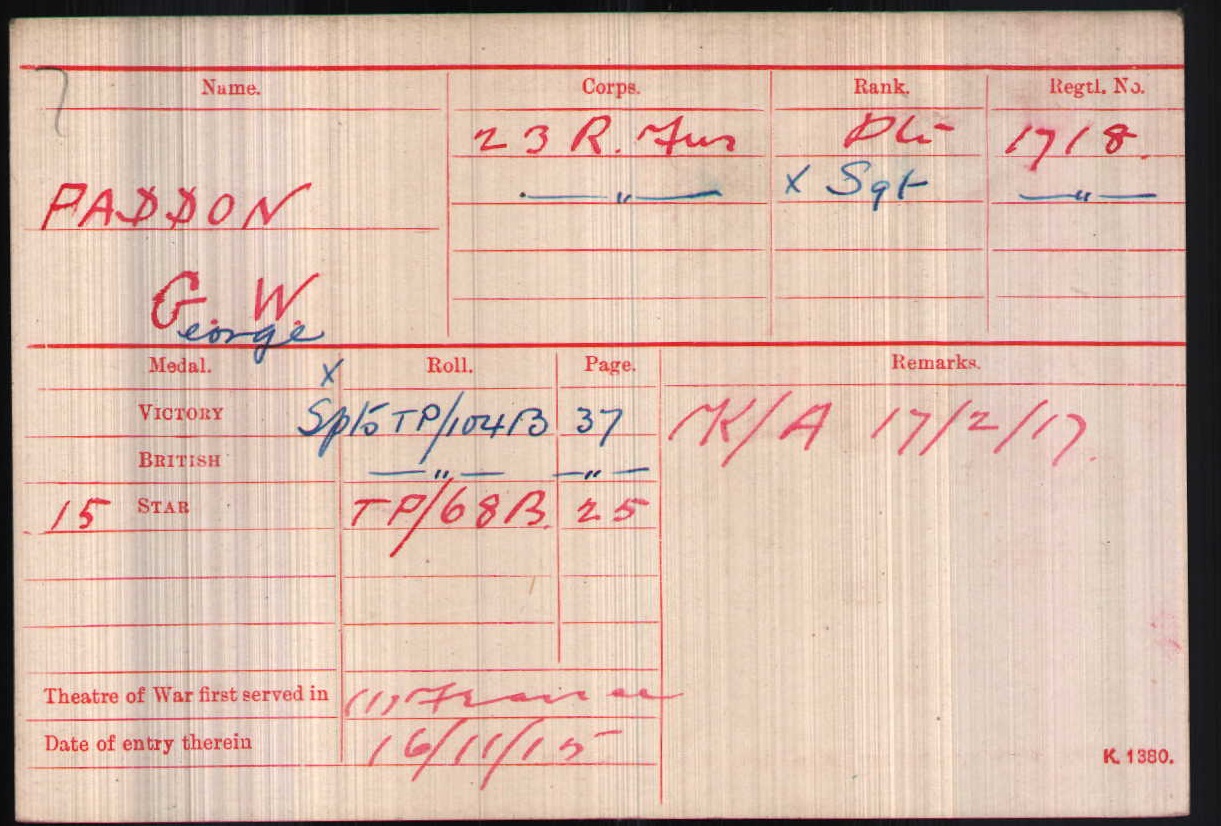 Name. Corps. Rank. Regtl. No.
23 R. Fus Pte 1718.
PADDON —〃— x Sgt —〃—
G. W.
eorge
Medal. x Roll. Page. Remarks.
VICTORY TP/104B 37 K/A 17/2/17.
BRITISH —〃— —〃—
15 STAR TP/68B. 25
Theatre of War first served in (1) France
Date of entry therein 16/11/15
K. 1380.